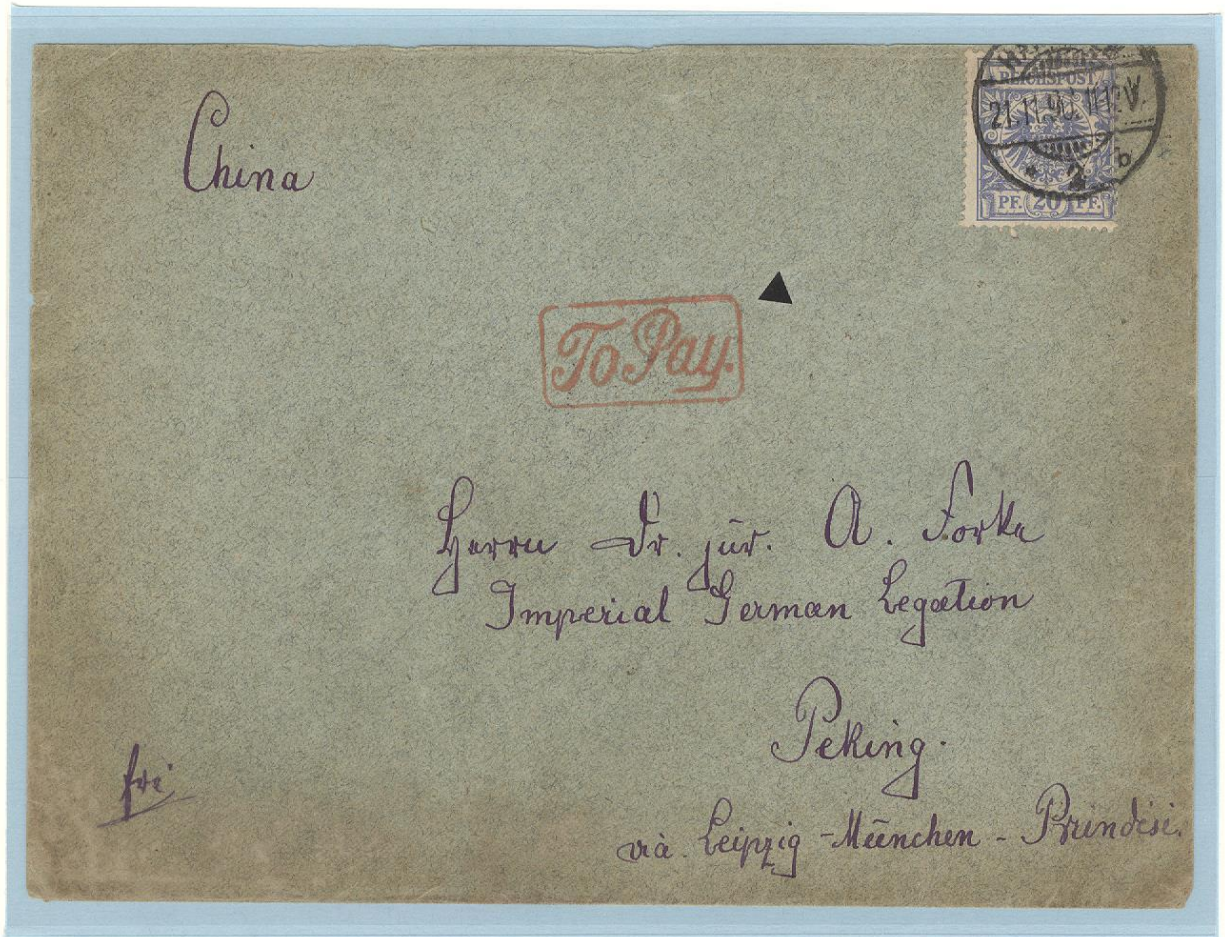 China
REICHSPOST
21.11.90. 11-12V.
* 2 b
PF. 20 PF.
To Pay.
Herrn Dr. jur. A. Forke
Imperial German Legation
Peking.
frei
via Leipzig - München - Brindisi.